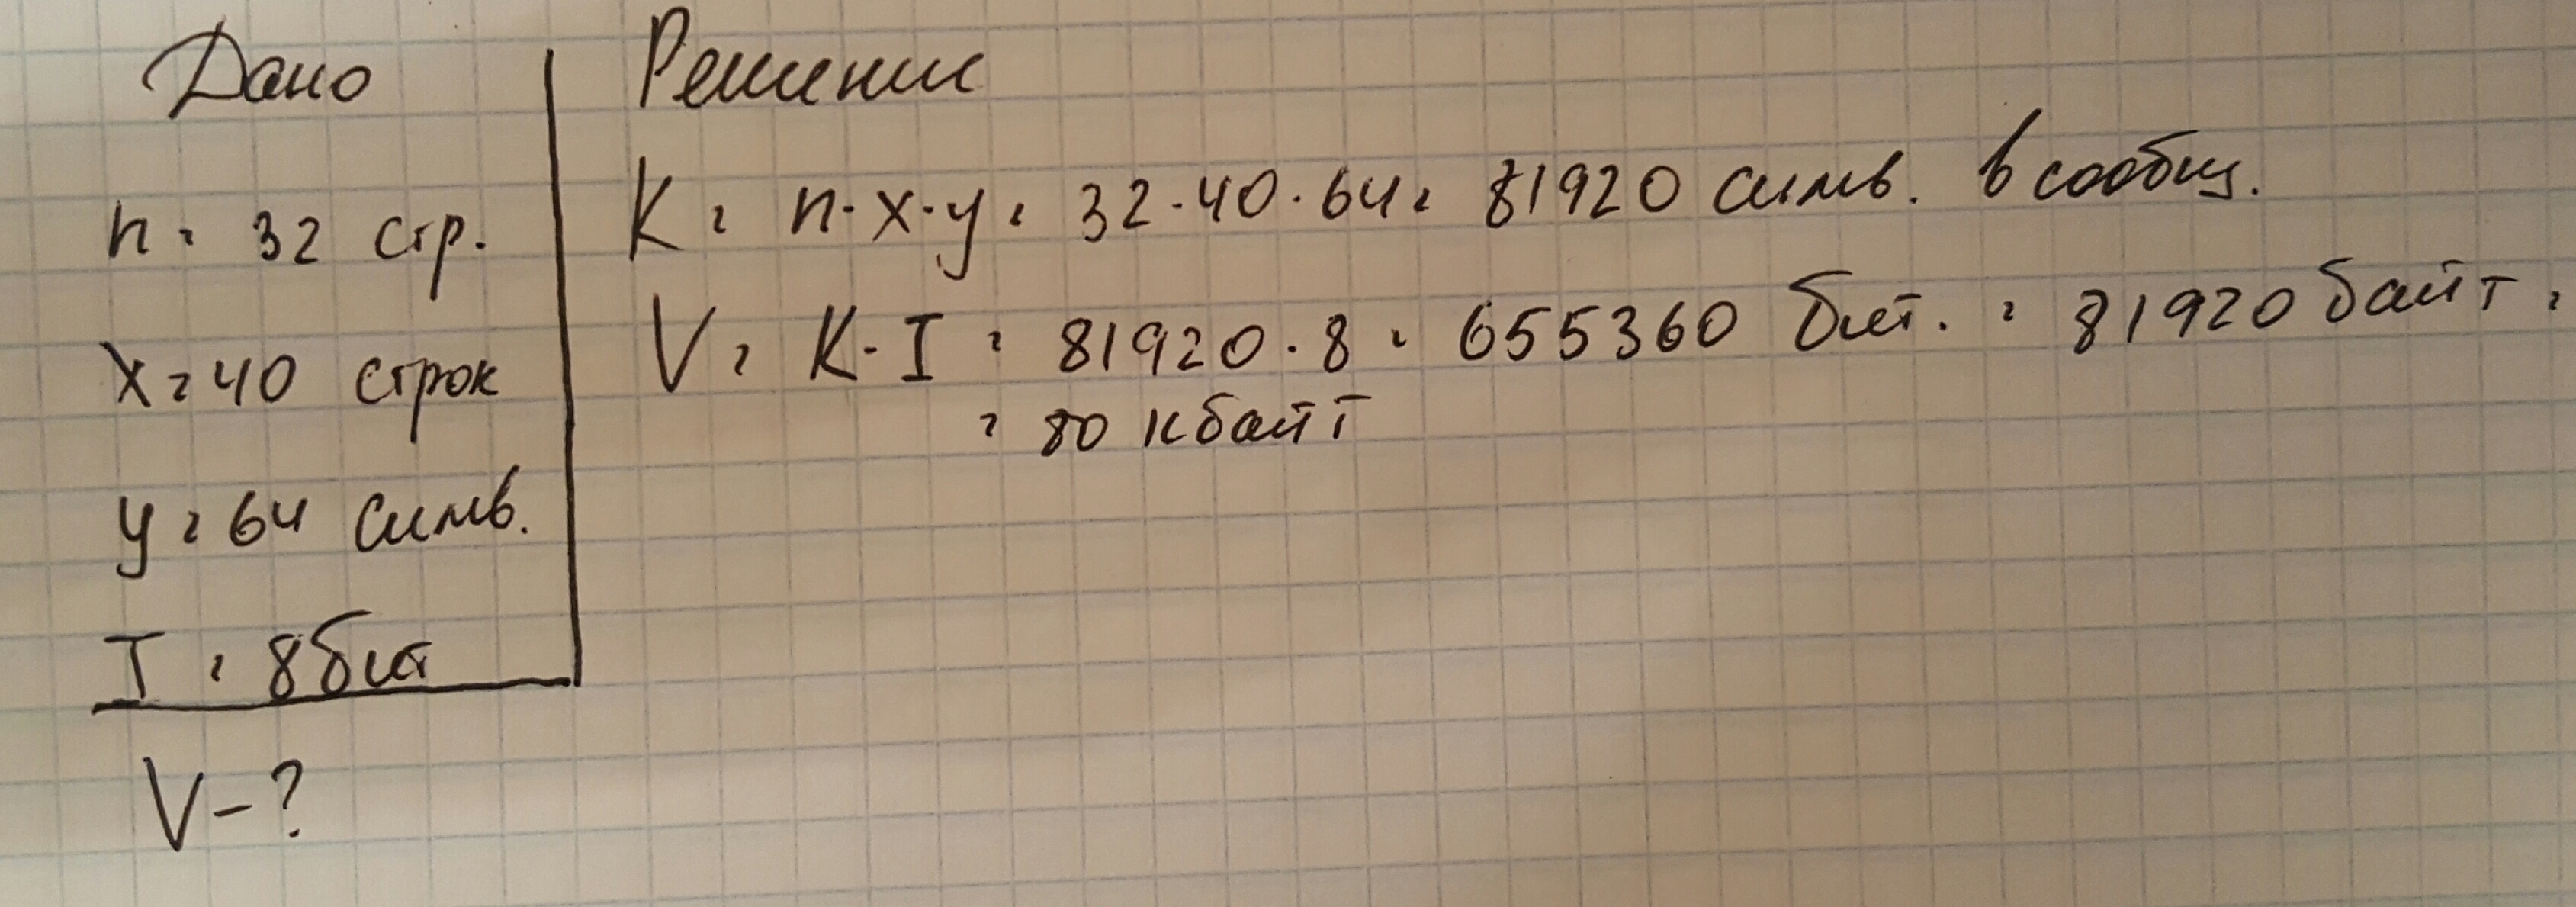 Дано
n = 32 стр.
x = 40 строк
y = 64 симв.
I = 8 бит
V - ?
Решение
K = n · x · y = 32 · 40 · 64 = 81920 симв. в сообщ.
V = K · I = 81920 · 8 = 655360 бит. = 81920 байт =
= 80 кбайт